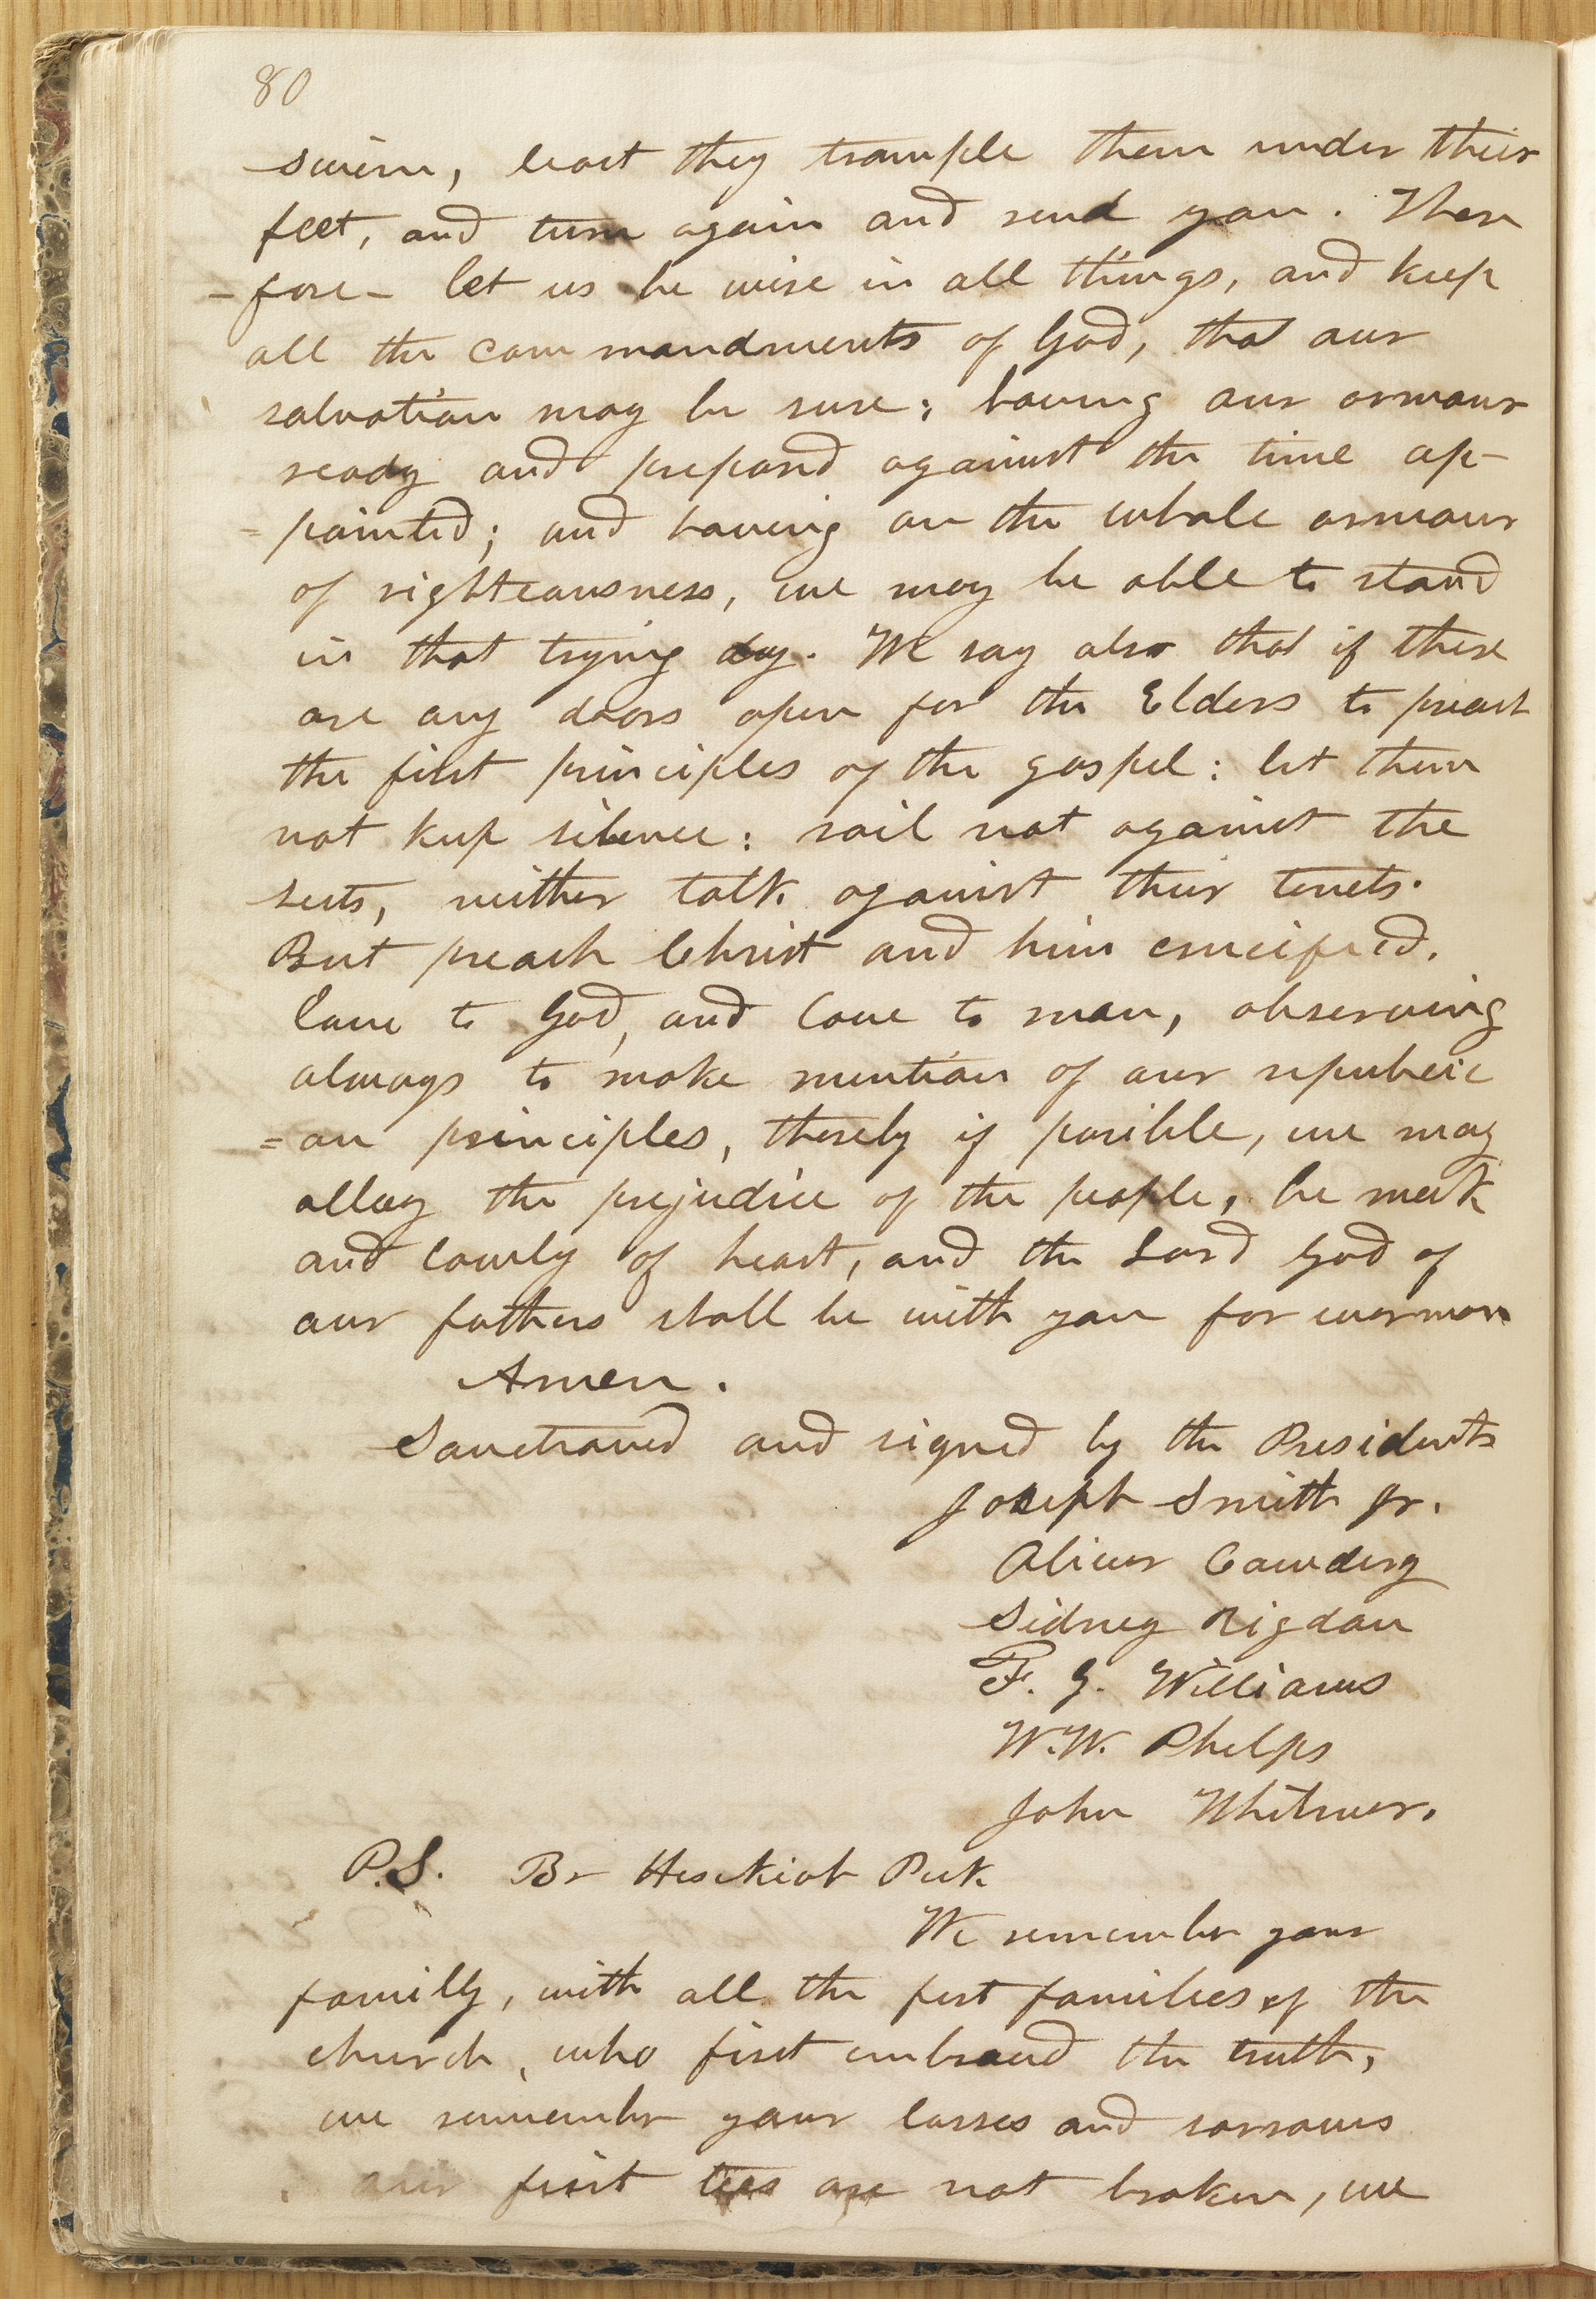 80
swein, least they trample them under their
feet, and turn again and rend you. There
-fore- let us be wise in all things, and keep
all the commandments of God, that our
salvation may be sure; having our armour
ready and prepared against the time ap-
=pointed; and having on the whole armour
of righteousness, we may be able to stand
in that trying day. We say also that if there
are any doors open for the Elders to preach
the first principles of the gospel: let them
not keep silence: rail not against the
sects, neither talk against their tenets.
But preach Christ and him crucified.
love to God, and love to man, observing
always to make mention of our republic
=an principles, thereby if posible, we may
allay the prejudice of the people, be meek
and lowly of heart, and the Lord God of
our fathers shall be with you for evermore
Amen.
Sanctioned and signed by the Presidents
Joseph Smith Jr.
Oliver Cowdery
Sidney Rigdon
F. G. Williams
W. W. Phelps
John Whitmer.
P.S. Br Hesekiah Peck
We remember your
family, with all the first families of the
church, who first embraced the truth,
we remember your losses and sorrows
our first ties are not broken, we